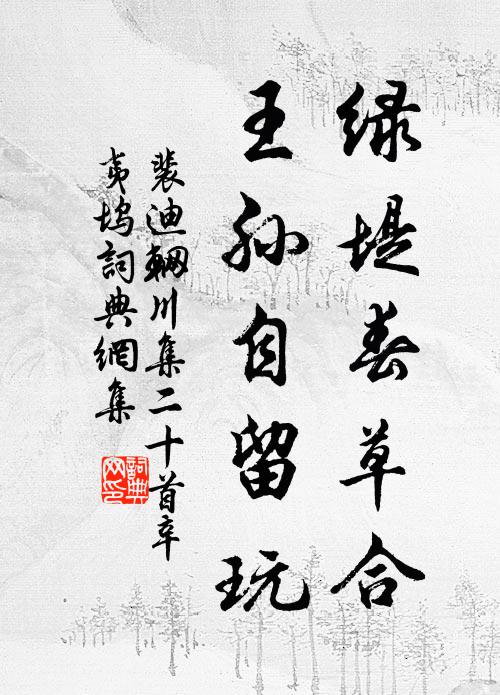 绿堤春草合
王孙自留玩
裴迪輞川集二十首辛
夷坞詞典網集
詞典
网印